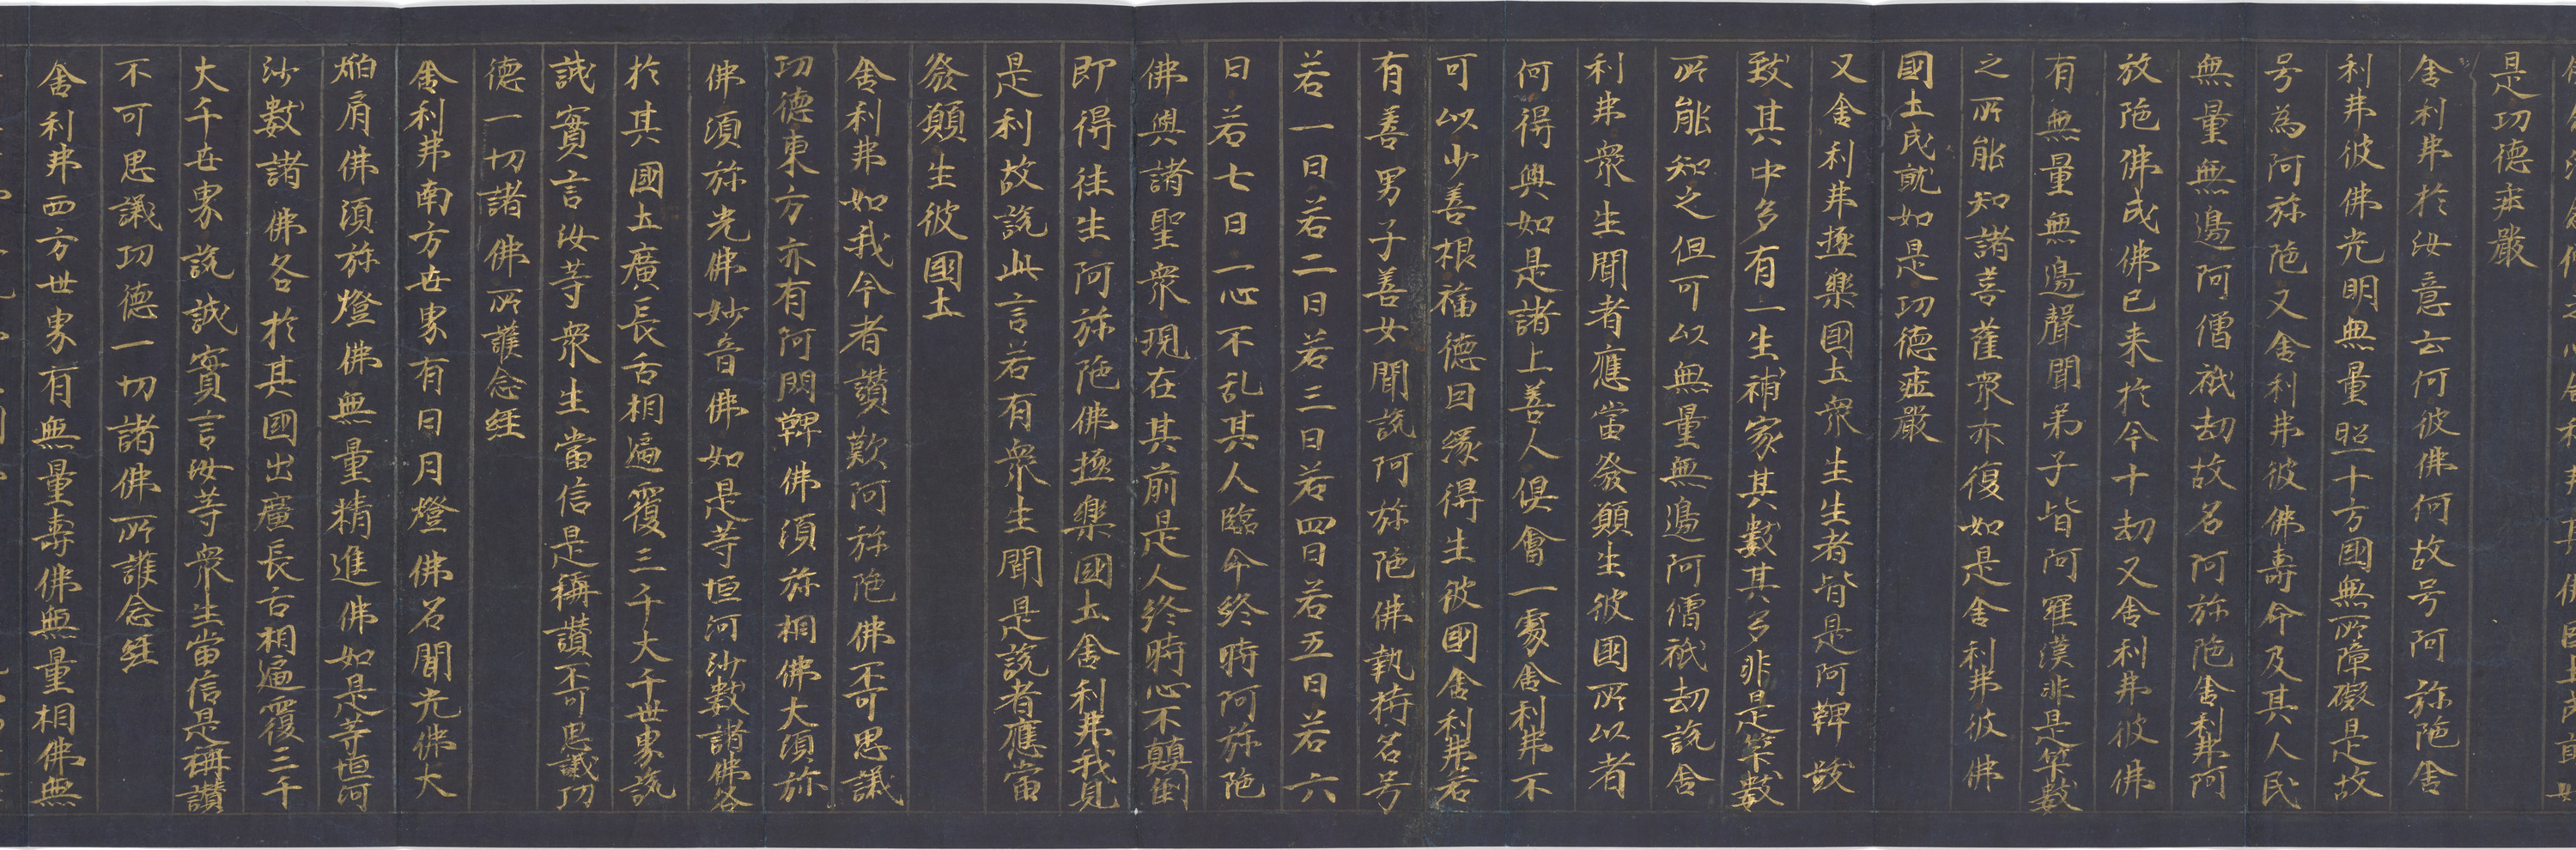 是功德莊嚴
舍利弗於汝意云何彼佛何故号阿弥陁舍
利弗彼佛光明無量照十方國無所障礙是故
号為阿弥陁又舍利弗彼佛壽命及其人民
無量無邊阿僧祇劫故名阿弥陁舍利弗阿
弥陁佛成佛已来於今十劫又舍利弗彼佛
有無量無邊聲聞弟子皆阿羅漢非是筭數
之所能知諸菩薩衆亦復如是舍利弗彼佛
國土成就如是功德莊嚴
又舍利弗極樂國土衆生生者皆是阿鞞跋
致其中多有一生補家其數其多非是筭數
所能知之但可以無量無邊阿僧祇劫說舍
利弗衆生聞者應當發願生彼國所以者
何得與如是諸上善人俱會一處舍利弗不
可以少善根福德因縁得生彼國舍利弗若
有善男子善女聞說阿弥陁佛執持名号
若一日若二日若三日若四日若五日若六
日若七日一心不乱其人臨命終時阿弥陁
佛與諸聖衆現在其前是人終時心不顛倒
即得往生阿弥陁佛極樂國土舍利弗我見
是利故說此言若有衆生聞是說者應當
發願生彼國土
舍利弗如我今者讚歎阿弥陁佛不可思議
功德東方亦有阿閦鞞佛須弥相佛大須弥
佛須弥光佛妙音佛如是等恒河沙數諸佛各
於其國土廣長舌相遍覆三千大千世界說
誠實言汝等衆生當信是稱讚不可思議功
德一切諸佛所護念経
舍利弗南方世界有日月燈佛名聞光佛大
焰肩佛須弥燈佛無量精進佛如是等恒河
沙數諸佛各於其國出廣長舌相遍覆三千
大千世界說誠實言汝等衆生當信是稱讚
不可思議功德一切諸佛所護念経
舍利弗西方世界有無量壽佛無量相佛無